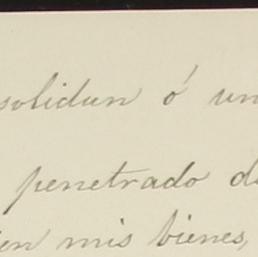 solidun ó un
penetrado d
en mis bienes,